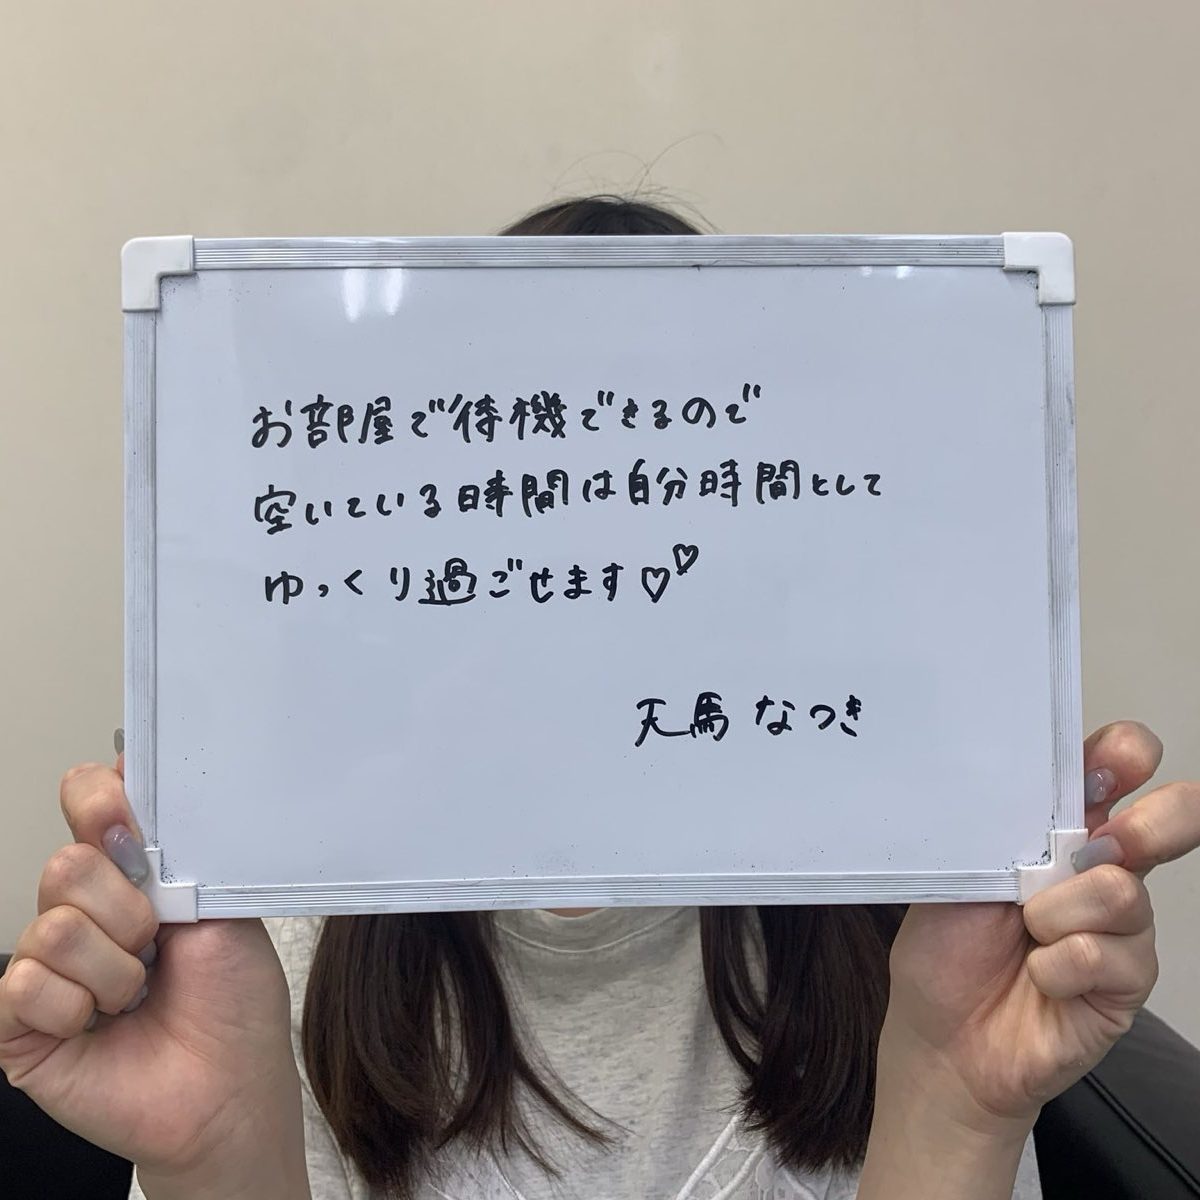 お部屋で待機できるので
空いている時間は自分時間として
ゆっくり過ごせます♡♡
天馬 なつき